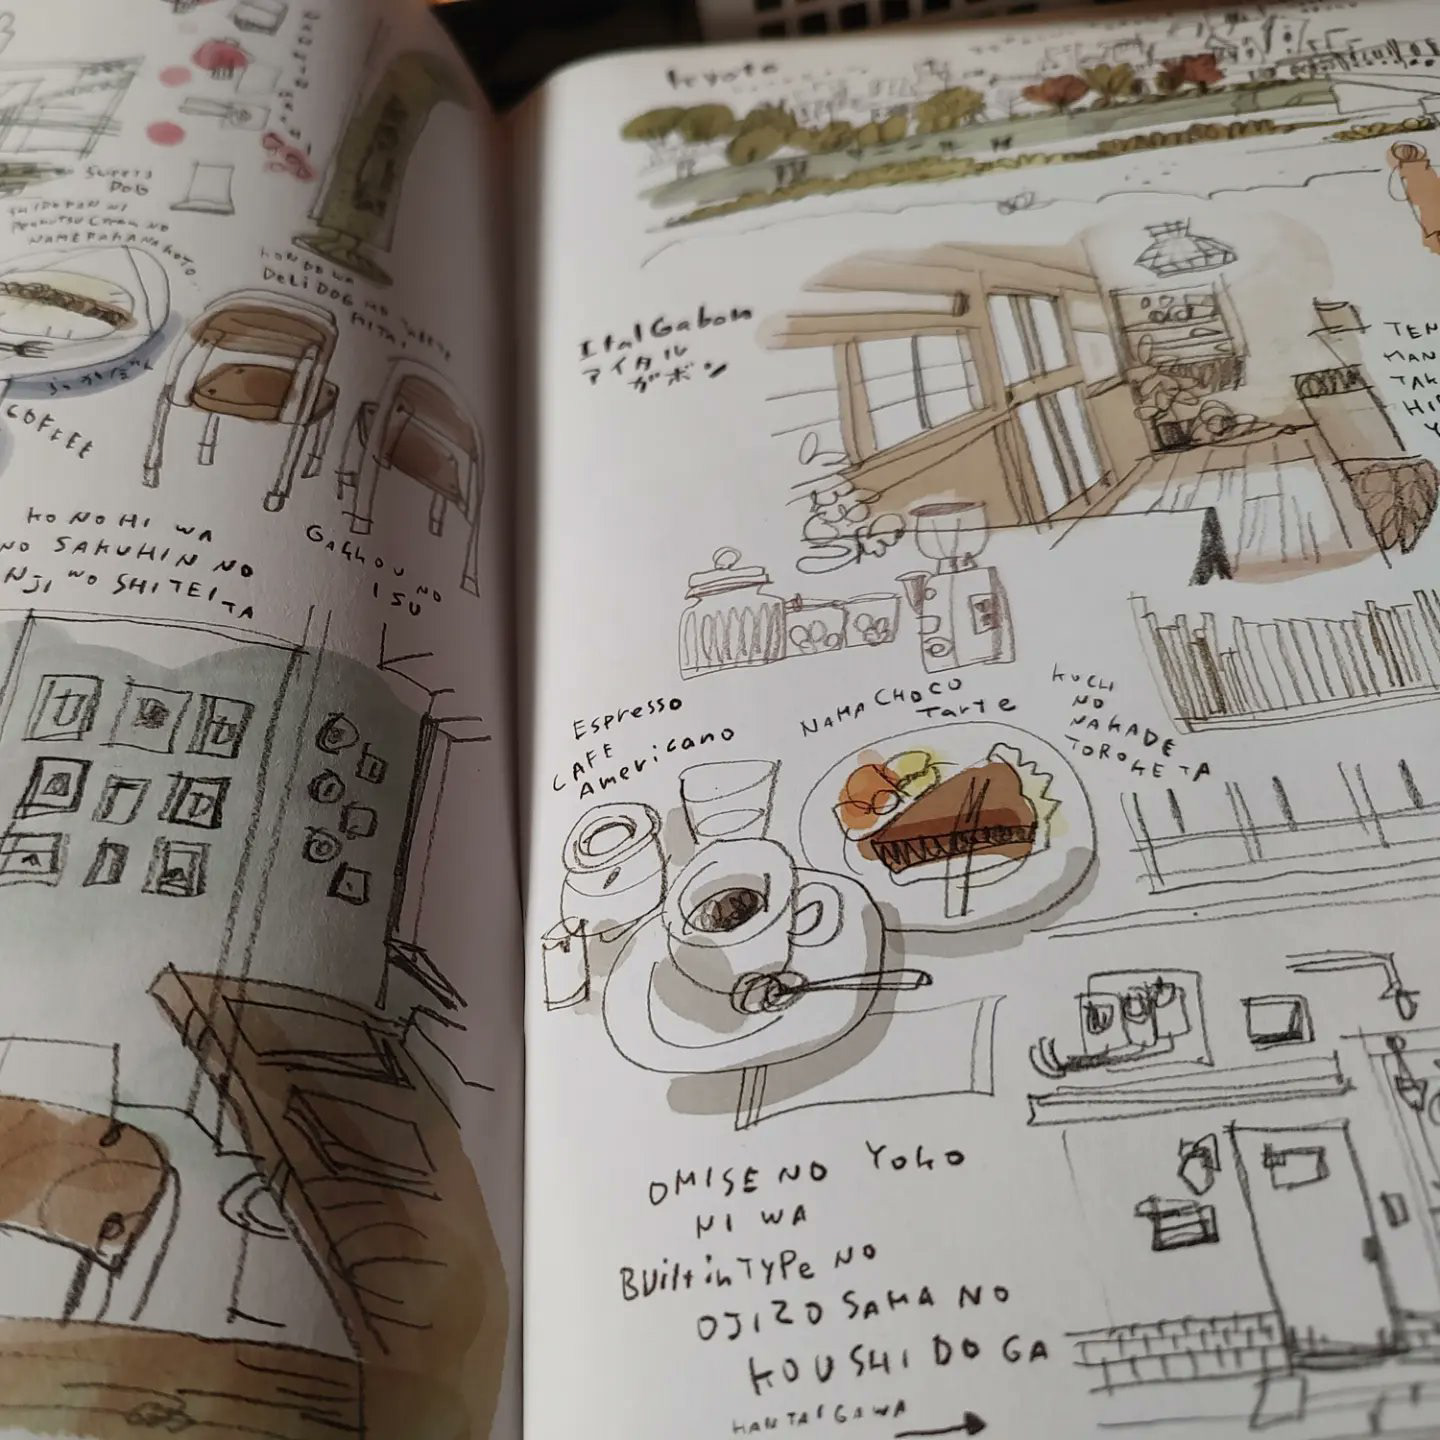 SWEETS
DOG
NAMERAKANAKOTO
HONDO WA
DELi DOG
MITAI
COFFEE
KONOHI WA
NO SAKUHIN NO
NJI WO SHITEITA
GAKKOU NO
ISU
Kyoto
ItalGabon
アイタル
ガボン
TEN
MAN
TAK
HI
Y
Espresso
CAFE
Americano
NAMA CHOCO
Tarte
KUCHI
NO
NAKADE
TOROKETA
OMISE NO YOKO
NI WA
BUilt in TYPe NO
OJIZOSAMA NO
KOUSHIDO GA
HANTAIGAWA